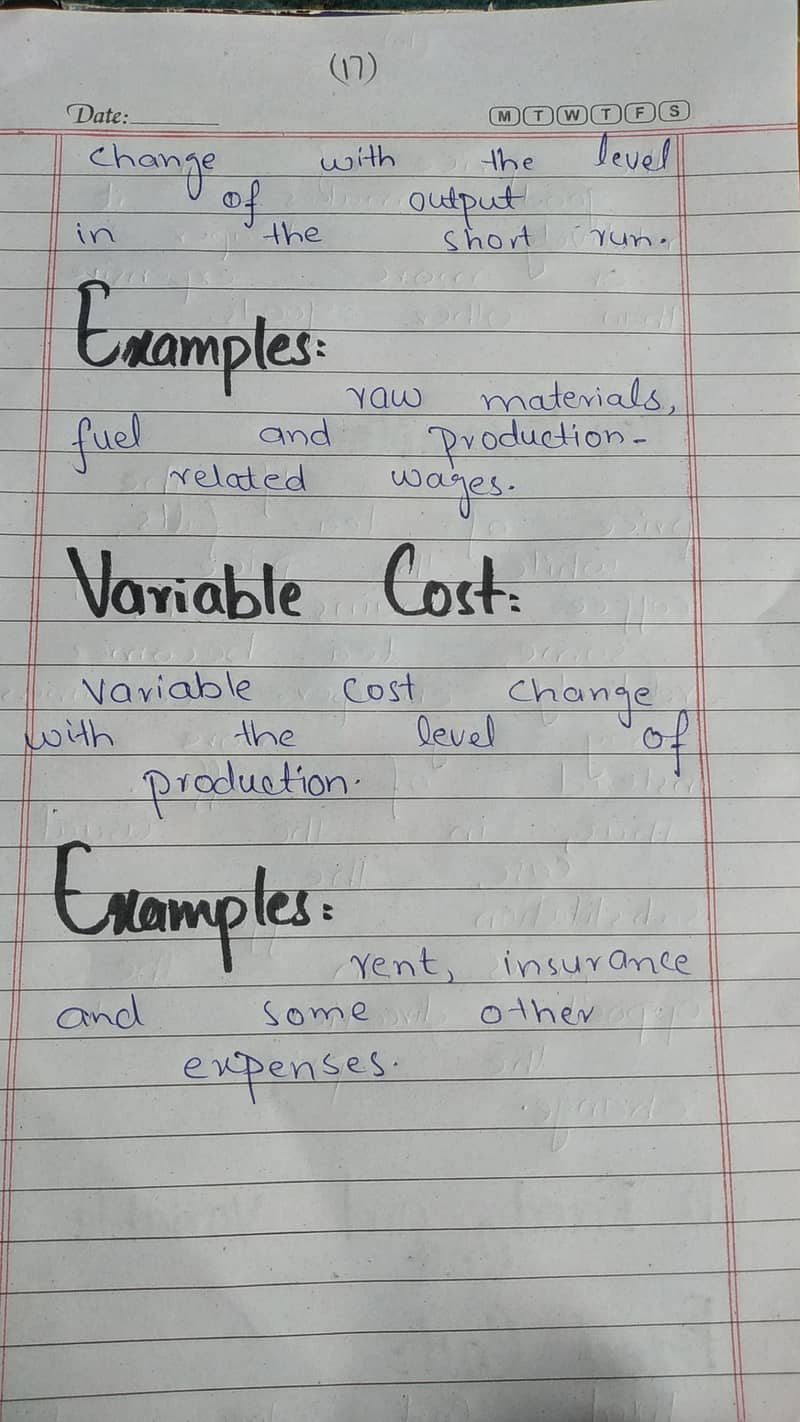 (17)
Date:
M T W T F S
change with the level
of output
in the short run.
Examples:
raw materials,
fuel and production-
related wages.
Variable Cost:
Variable cost change
with the level of
production.
Examples:
rent, insurance
and some other
expenses.